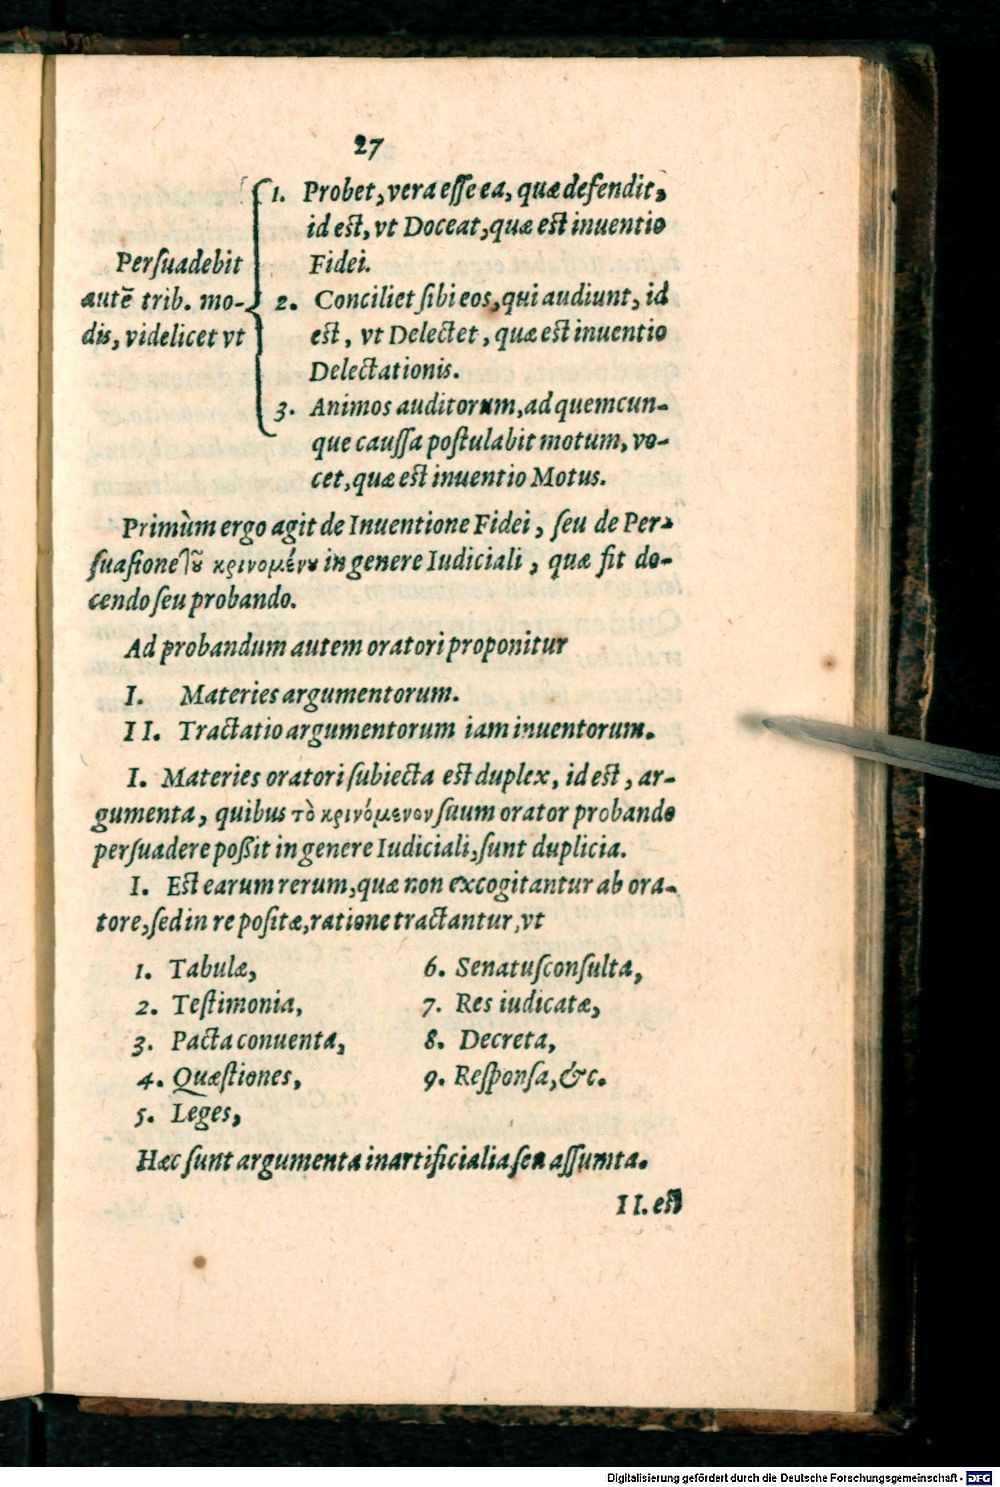 27
Persuadebit
autẽ trib. mo-
dis, videlicet vt
1. Probet, vera esse ea, quæ defendit,
id est, vt Doceat, quæ est inuentio
Fidei.
2. Conciliet sibi eos, qui audiunt, id
est, vt Delectet, quæ est inuentio
Delectationis.
3. Animos auditorum, ad quemcun-
que caussa postulabit motum, vo-
cet, quæ est inuentio Motus.
Primùm ergo agit de Inuentione Fidei, seu de Per-
suasione τοῦ κρινομένου in genere Iudiciali, quæ fit do-
cendo seu probando.
Ad probandum autem oratori proponitur
I. Materies argumentorum.
II. Tractatio argumentorum iam inuentorum.
I. Materies oratori subiecta est duplex, id est, ar-
gumenta, quibus τὸ κρινόμενον suum orator probando
persuadere poßit in genere Iudiciali, sunt duplicia.
I. Est earum rerum, quæ non excogitantur ab ora-
tore, sed in re positæ, ratione tractantur, vt
1. Tabulæ,
2. Testimonia,
3. Pacta conuenta,
4. Quæstiones,
5. Leges,
6. Senatusconsulta,
7. Res iudicatæ,
8. Decreta,
9. Responsa, &c.
Hæc sunt argumenta inartificialia seu assumta.
II. est
Digitalisierung gefördert durch die Deutsche Forschungsgemeinschaft - DFG